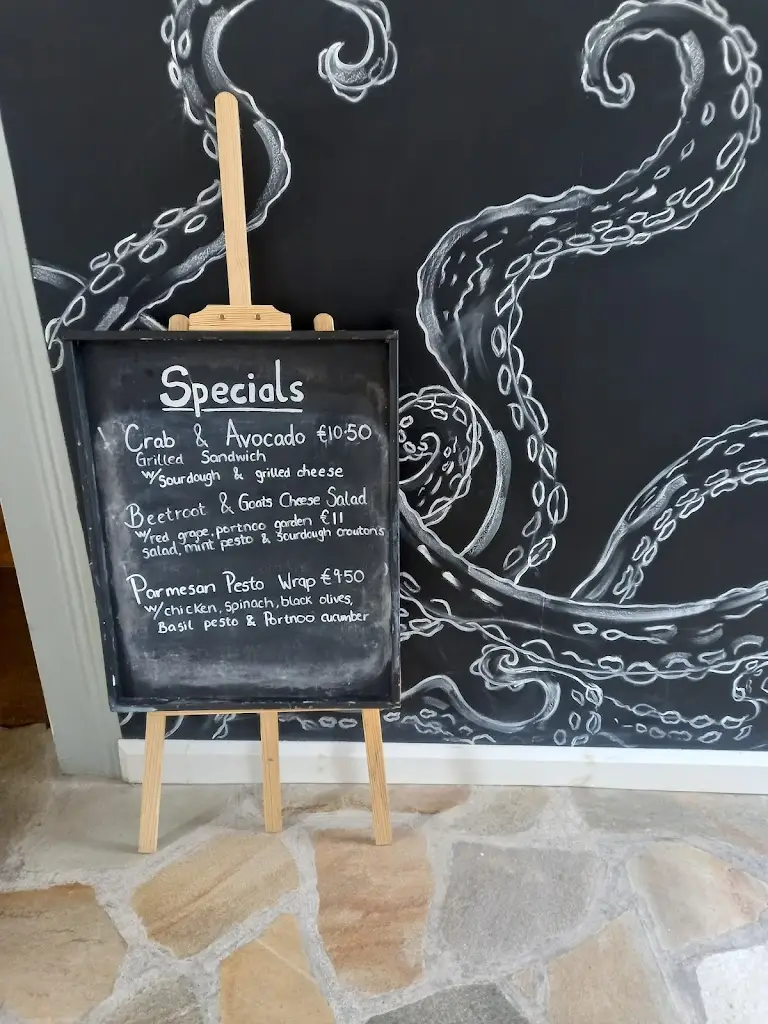 Specials
Crab & Avocado €10.50
Grilled Sandwich
w/Sourdough & grilled cheese
Beetroot & Goats Cheese Salad
w/red grape, portnoo garden €11
salad, mint pesto & sourdough crouton's
Parmesan Pesto Wrap €9.50
w/chicken, spinach, black olives,
Basil pesto & Portnoo cucumber